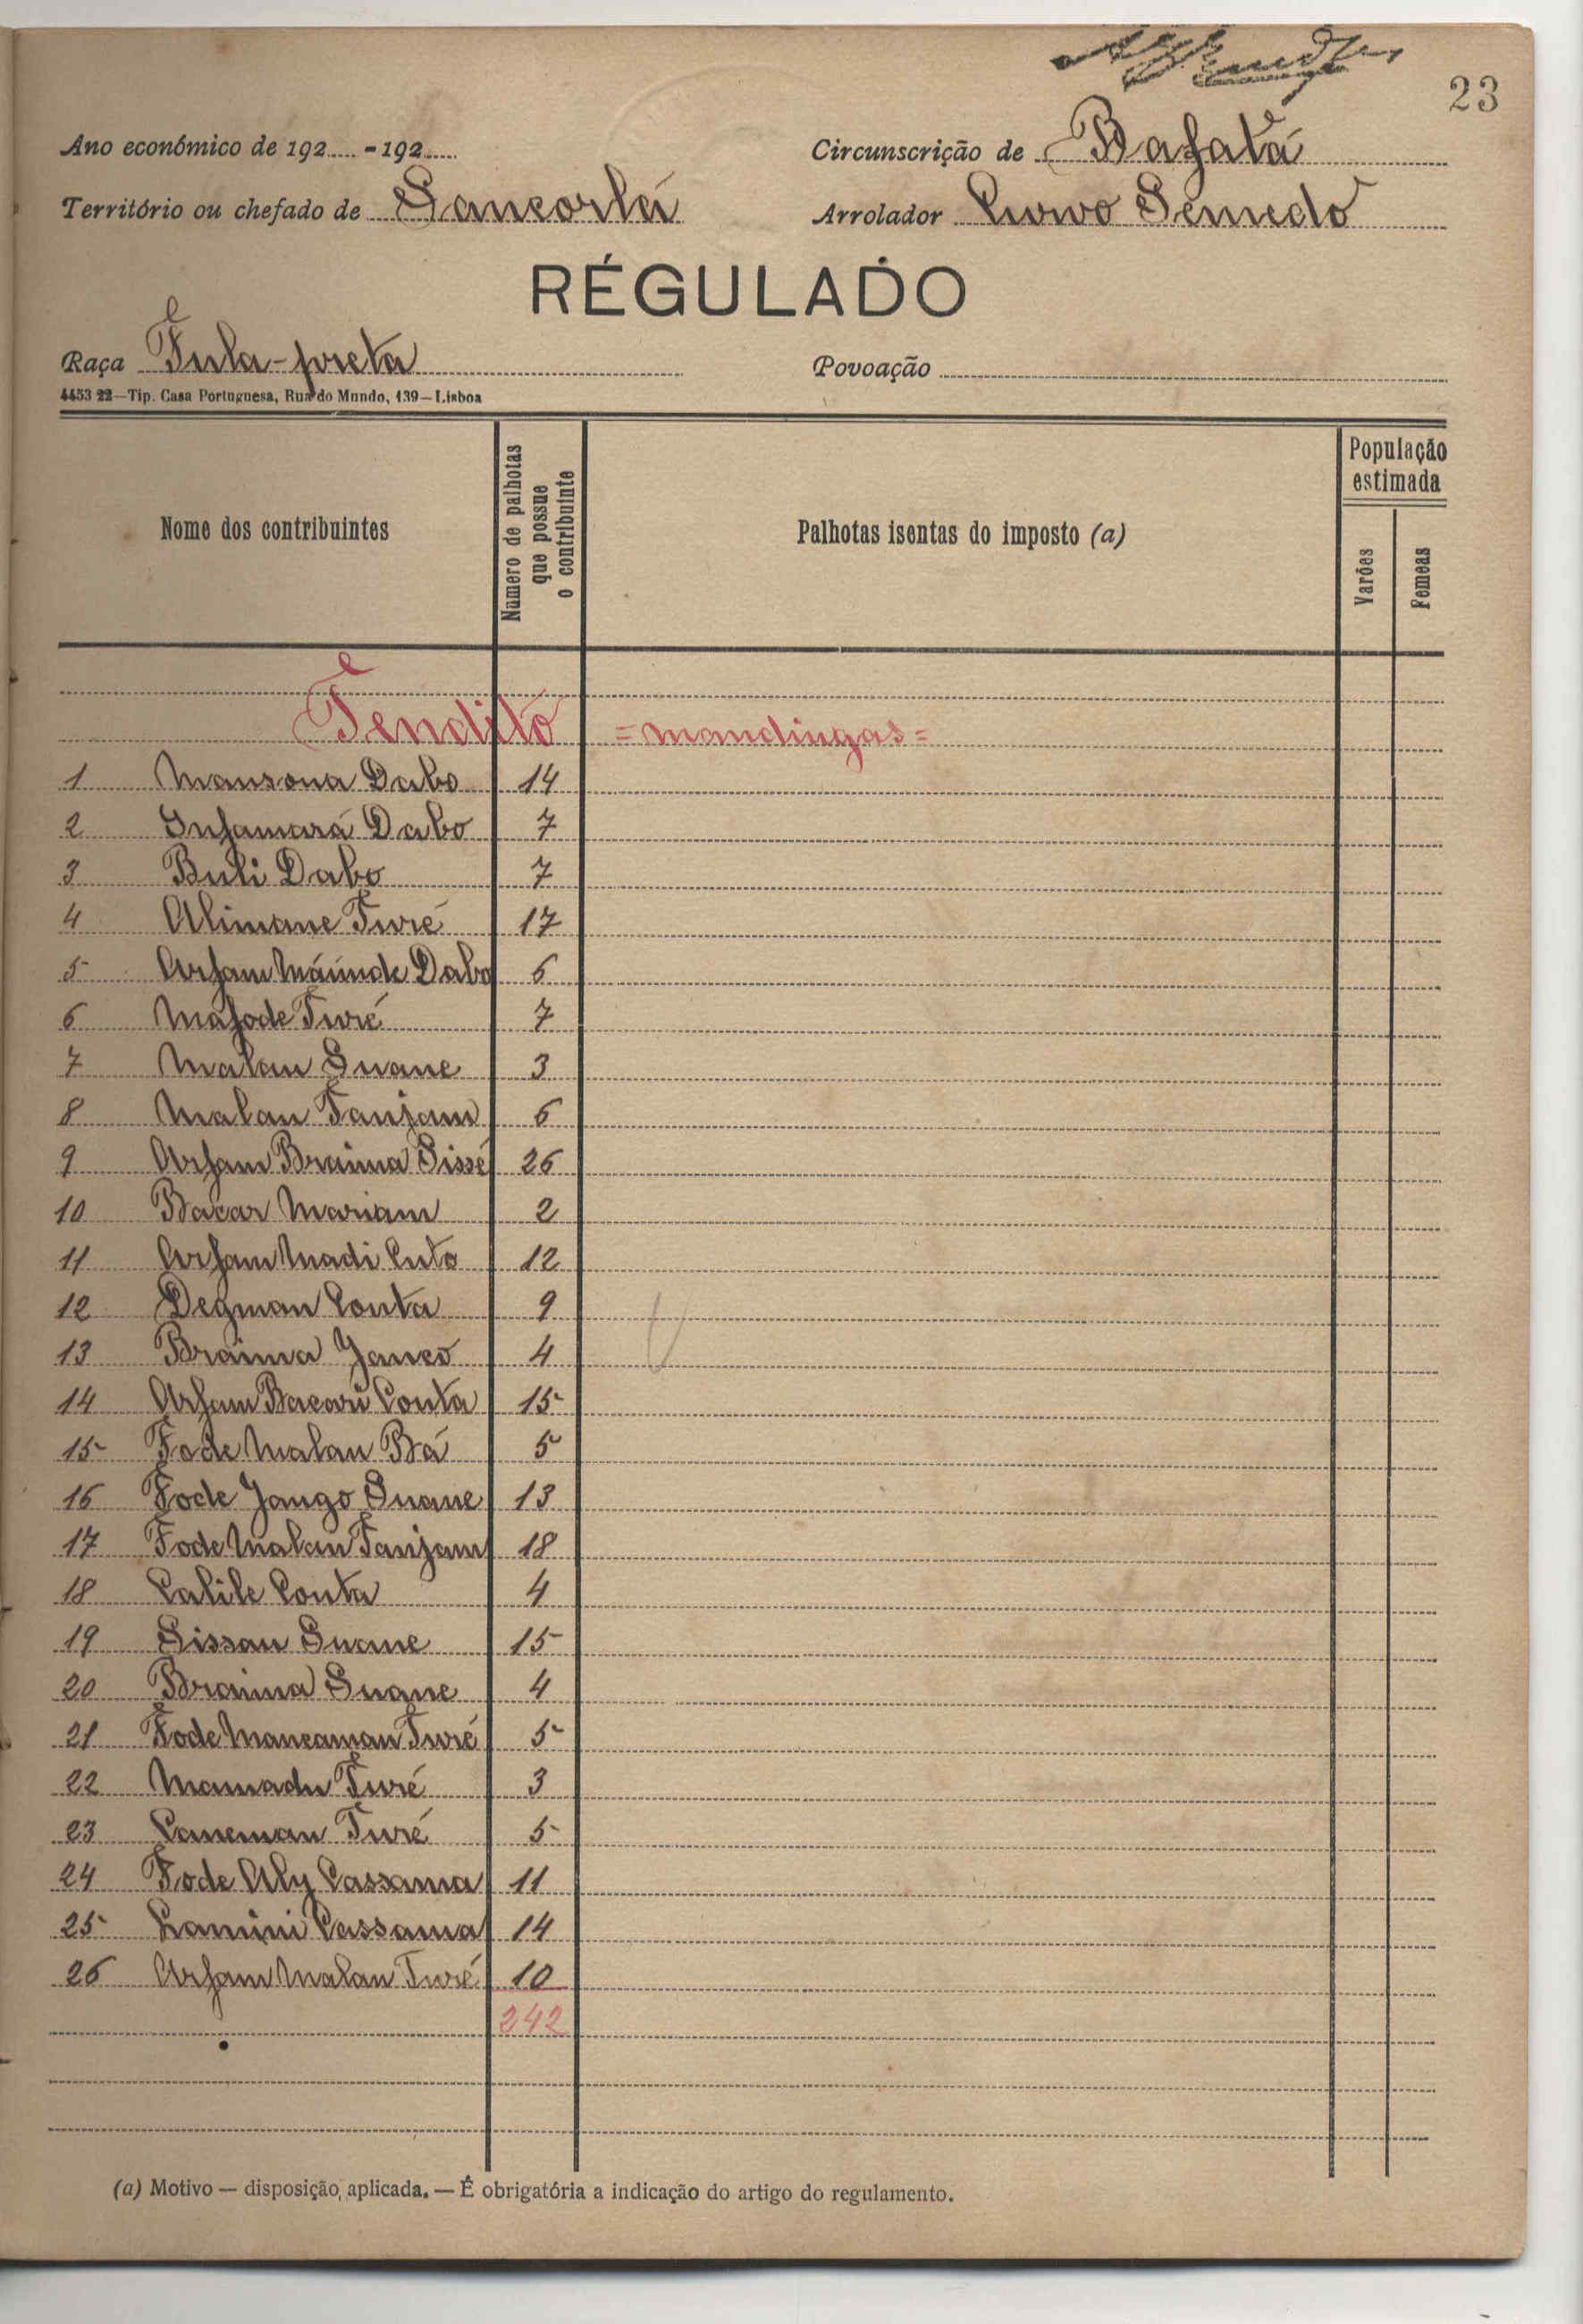 23
Ano económico de 192..... - 192.....
Circunscrição de Bafatá
Território ou chefado de Sancorlá
Arrolador Curvo Semedo
RÉGULADO
Raça Fula-preta
Povoação
4453 22—Tip. Casa Portuguesa, Rua do Mundo, 139—Lisboa
Nome dos contribuintes
Numero de palhotas que possue o contribuinte
Palhotas isentas do imposto (a)
População estimada
Varões
Femeas
Tenditó = mandingas =
1 Mansona Dabo 14
2 Infamará Dabo 7
3 Buli Dabo 7
4 Alimane Turé 17
5 Arfam Máunde Dabo 6
6 Mafode Turé 7
7 Malan Suane 3
8 Malan Fanjam 6
9 Arfam Braima Sissé 26
10 Bacar Mariam 2
11 Arfam Madi Cuto 12
12 Degman Conta 9
13 Braima Yancó 4
14 Arfam Bacari Conta 15
15 Fode Malan Bá 5
16 Fode Jango Suane 13
17 Fode Malan Fanjam 18
18 Calile Conta 4
19 Sissau Suane 15
20 Braima Suane 4
21 Fode Mancaman Turé 5
22 Mamadu Turé 3
23 Caneman Turé 5
24 Fode Aly Cassama 11
25 Lamini Cassama 14
26 Arfam Malan Turé 10
242
(a) Motivo — disposição aplicada. — É obrigatória a indicação do artigo do regulamento.